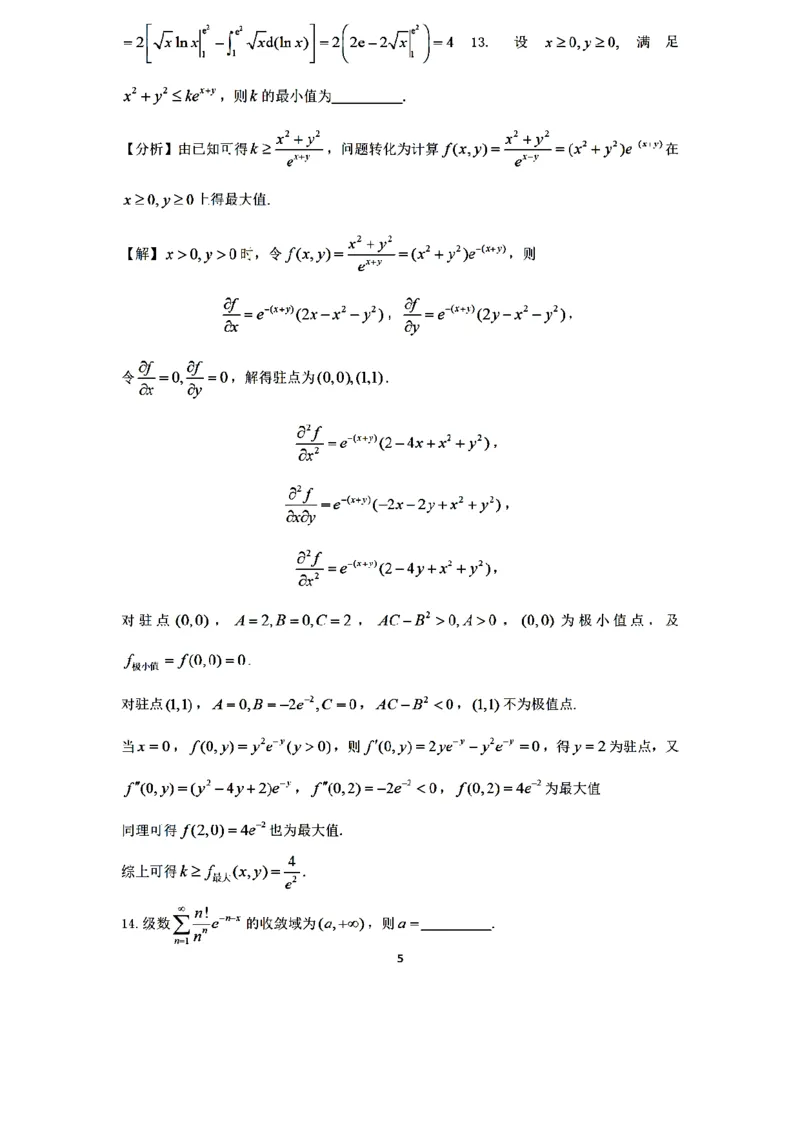 =2[√x ln x|₁^{e²} − ∫₁^{e²} √x d(ln x)] = 2(2e − 2√x|₁^{e²}) = 4 13. 设 x≥0, y≥0, 满足
x²+y²≤ke^{x+y}，则k的最小值为________.
【分析】由已知可得k≥(x²+y²)/e^{x+y}，问题转化为计算f(x,y)=(x²+y²)/e^{x−y}=(x²+y²)e^{(x+y)}在
x≥0, y≥0上得最大值.
【解】x>0, y>0时，令f(x,y)=(x²+y²)/e^{x+y}=(x²+y²)e^{−(x+y)}，则
∂f/∂x=e^{−(x+y)}(2x−x²−y²)，∂f/∂y=e^{−(x+y)}(2y−x²−y²)，
令∂f/∂x=0, ∂f/∂y=0，解得驻点为(0,0),(1,1).
∂²f/∂x²=e^{−(x+y)}(2−4x+x²+y²)，
∂²f/∂x∂y=e^{−(x+y)}(−2x−2y+x²+y²)，
∂²f/∂x²=e^{−(x+y)}(2−4y+x²+y²)，
对驻点(0,0)，A=2,B=0,C=2，AC−B²>0,A>0，(0,0)为极小值点，及
f_{极小值}=f(0,0)=0.
对驻点(1,1)，A=0,B=−2e^{−2},C=0，AC−B²<0，(1,1)不为极值点.
当x=0，f(0,y)=y²e^{−y}(y>0)，则f′(0,y)=2ye^{−y}−y²e^{−y}=0，得y=2为驻点，又
f″(0,y)=(y²−4y+2)e^{−y}，f″(0,2)=−2e^{−2}<0，f(0,2)=4e^{−2}为最大值
同理可得f(2,0)=4e^{−2}也为最大值.
综上可得k≥f_{最大}(x,y)=4/e².
14.级数∑_{n=1}^{∞} (n!/nⁿ)e^{−n−x}的收敛域为(a,+∞)，则a=________.
5